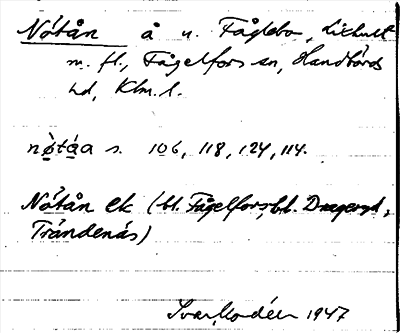 Nótån å u. Fåglebo, Lixhult
m. fl., Fågelfors sn, Handbörds
hd, Klm. l.
nò̱tá̱a s. 106, 118, 124, 114.
Nótån ek (bl. Fågelfors, bl. Drageryd,
Trändenäs)
Ivar Modéer 1947